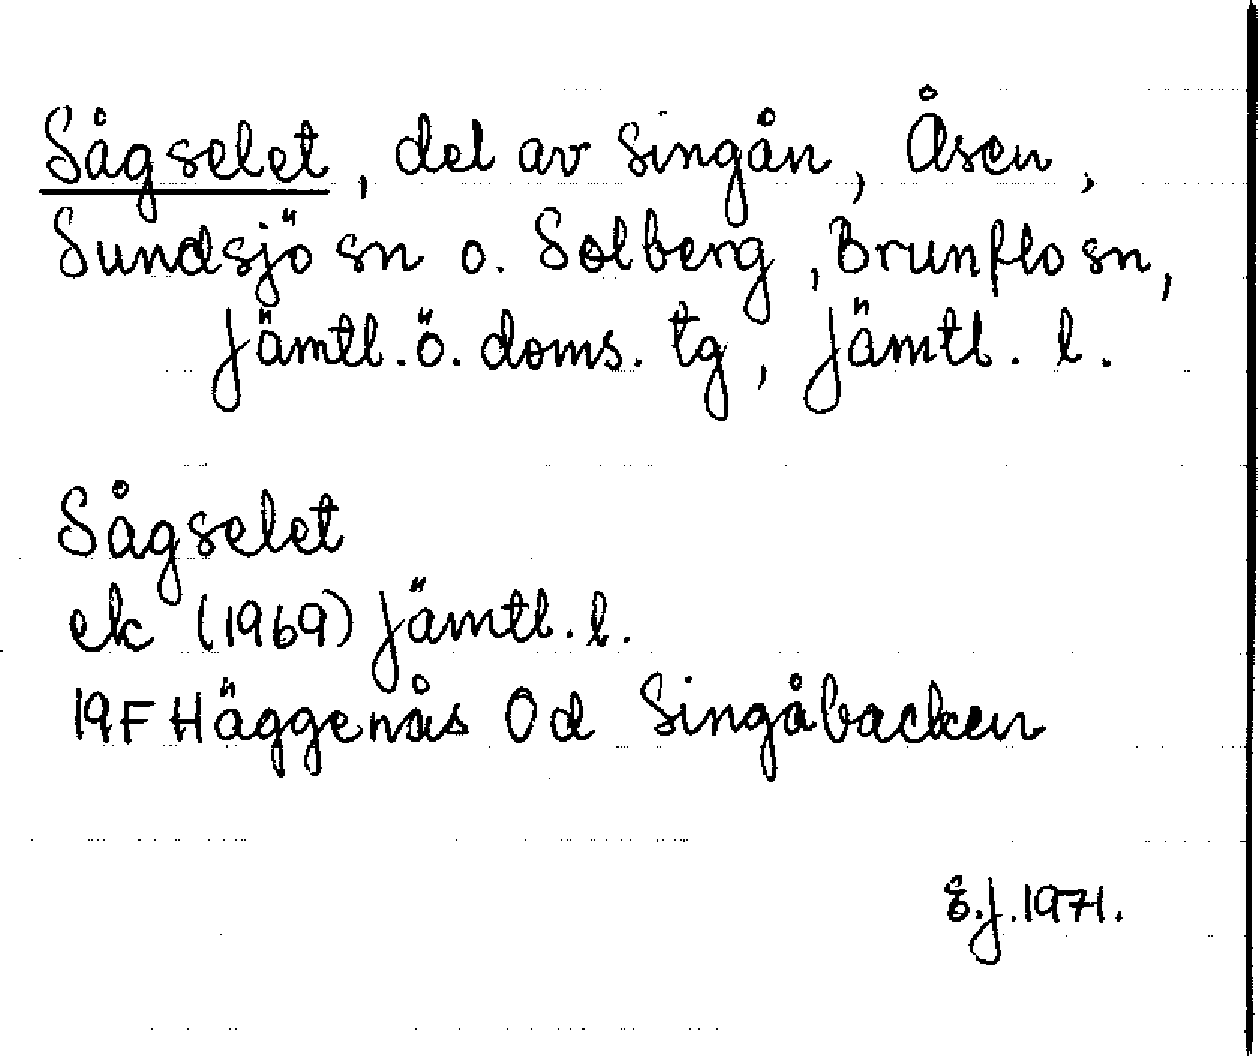 Sågselet, del av Singån, Åsen,
Sundsjö sn o. Solberg, Brunflo sn,
Jämtl. ö. doms. tg, Jämtl. l.
Sågselet
ek (1969) Jämtl. l.
19F Häggenås 0d Singåbacken
E.J. 1971.